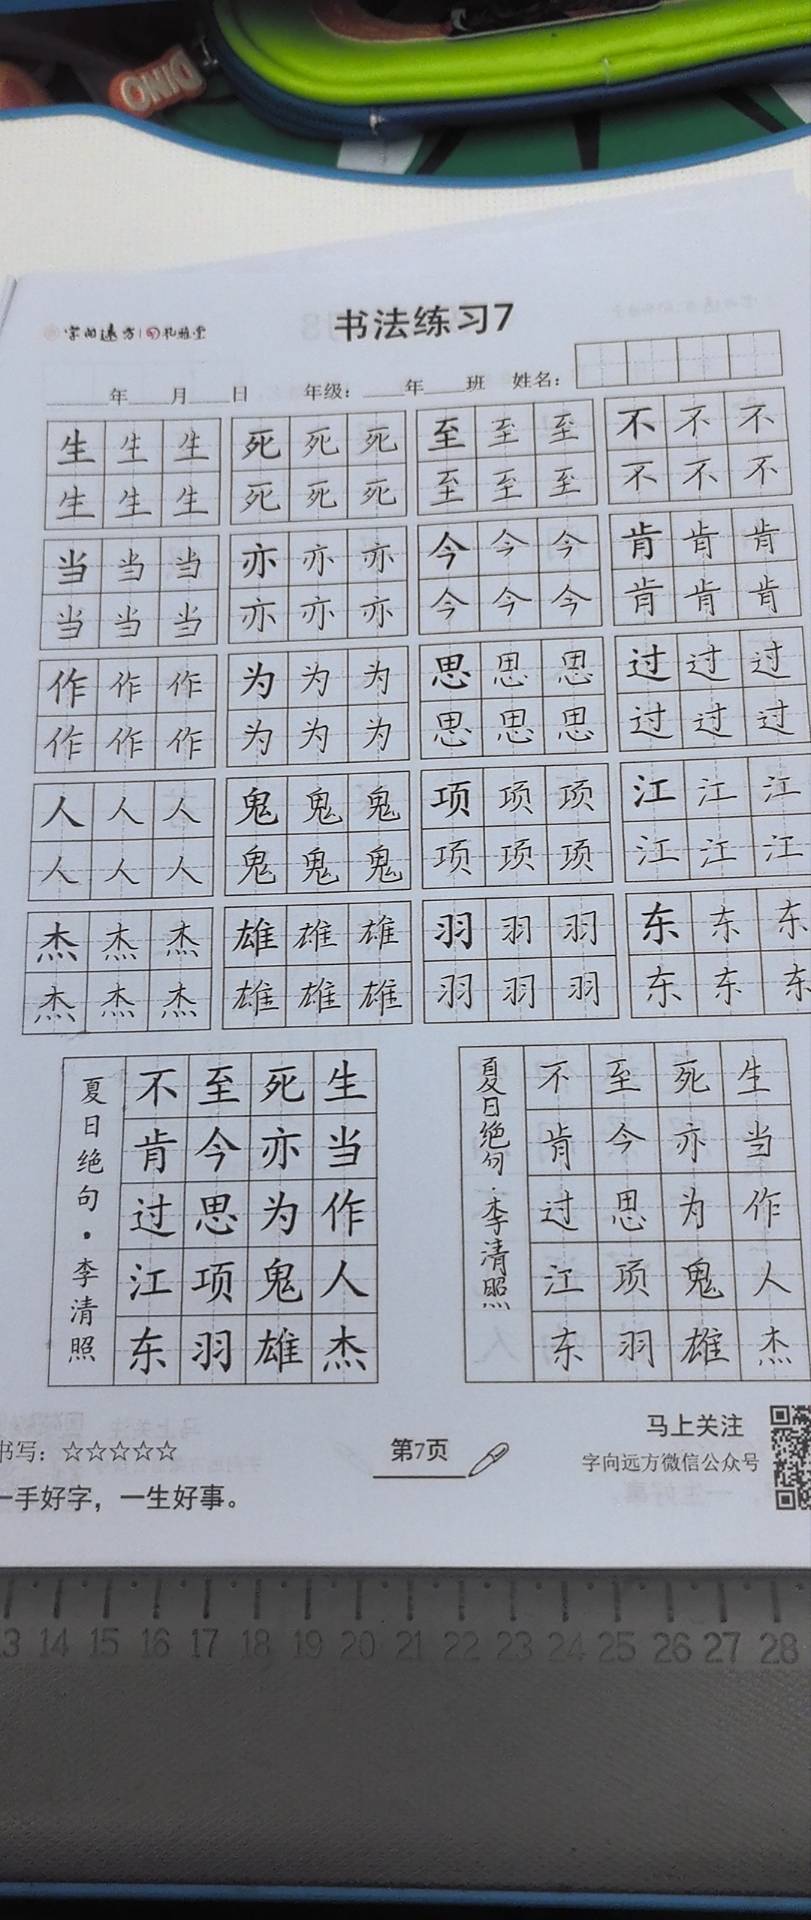 DINO
字向远方 礼雅堂
书法练习7
年 月 日 年级： 年 班 姓名：
生 生 生 死 死 死 至 至 至 不 不 不
生 生 生 死 死 死 至 至 至 不 不 不
当 当 当 亦 亦 亦 今 今 今 肯 肯 肯
当 当 当 亦 亦 亦 今 今 今 肯 肯 肯
作 作 作 为 为 为 思 思 思 过 过 过
作 作 作 为 为 为 思 思 思 过 过 过
人 人 人 鬼 鬼 鬼 项 项 项 江 江 江
人 人 人 鬼 鬼 鬼 项 项 项 江 江 江
杰 杰 杰 雄 雄 雄 羽 羽 羽 东 东 东
杰 杰 杰 雄 雄 雄 羽 羽 羽 东 东 东
生当作人杰
死亦为鬼雄
至今思项羽
不肯过江东
夏日绝句·李清照
生当作人杰
死亦为鬼雄
至今思项羽
不肯过江东
夏日绝句·李清照
书写：☆☆☆☆☆
一手好字，一生好事。
第7页
马上关注
字向远方微信公众号
13 14 15 16 17 18 19 20 21 22 23 24 25 26 27 28